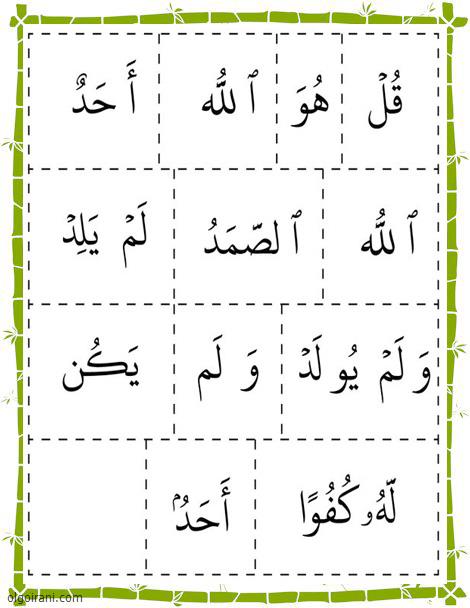 قُلۡ هُوَ ٱللَّه أَحَدٌ
ٱللَّه ٱلصَّمَدُ لَمۡ يَلِدۡ
وَلَمۡ يُولَدۡ وَلَم يَكُن
لَّهُۥ كُفُوًا أَحَدُۢ
olgoirani.com